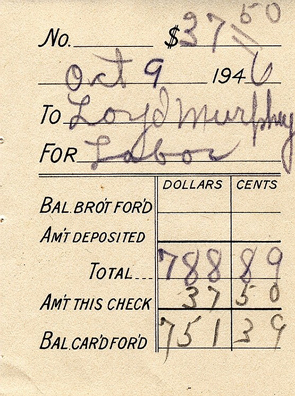 No. $37 50
Oct 9 1946
To Loyd Murphey
For Labor
DOLLARS CENTS
BAL. BRO'T FOR'D
AM'T DEPOSITED
TOTAL... 788 89
AM'T THIS CHECK 37 50
BAL. CAR'D FOR'D 751 39